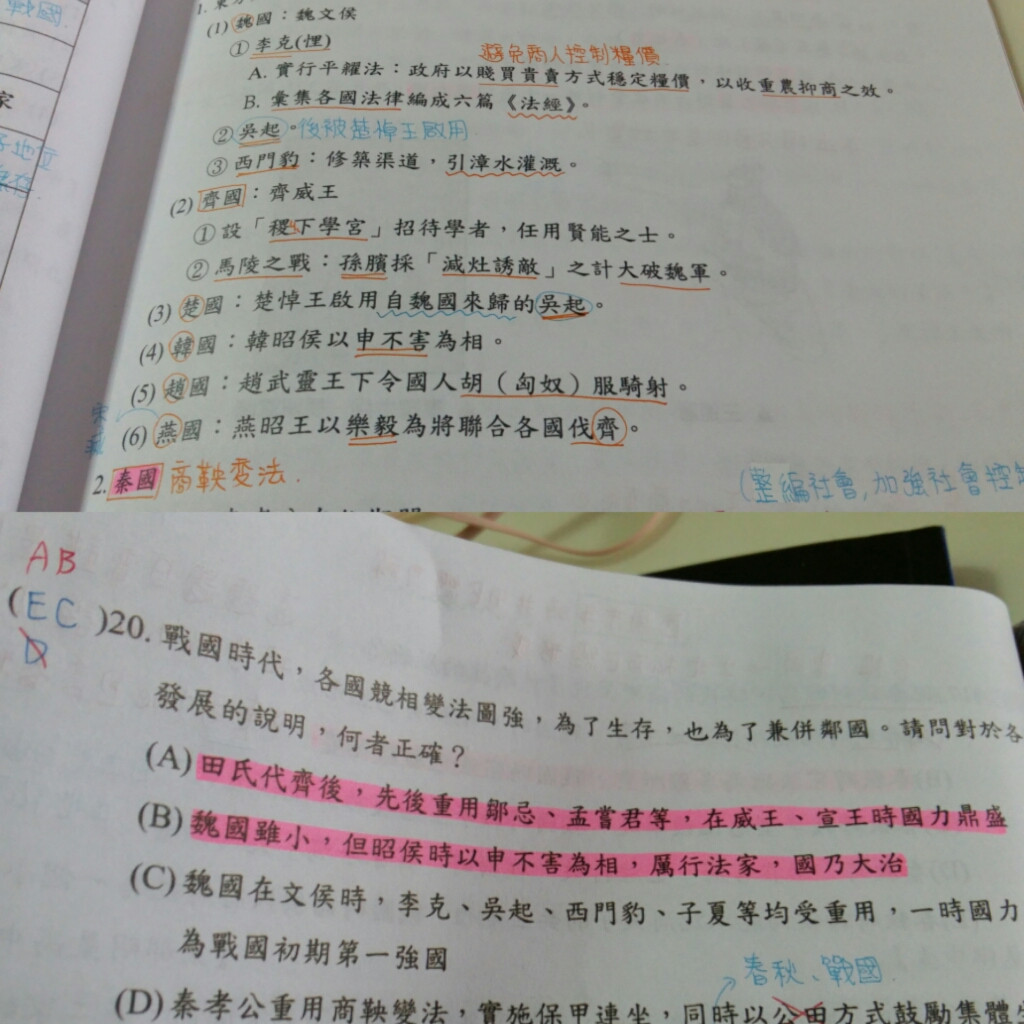 戰國
(1) 魏國：魏文侯
① 李克(悝)
避免商人控制糧價
A. 實行平糴法：政府以賤買貴賣方式穩定糧價，以收重農抑商之效。
B. 彙集各國法律編成六篇《法經》。
② 吳起。後被楚悼王啟用
③ 西門豹：修築渠道，引漳水灌溉。
(2) 齊國：齊威王
① 設「稷下學宮」招待學者，任用賢能之士。
② 馬陵之戰：孫臏採「減灶誘敵」之計大破魏軍。
(3) 楚國：楚悼王啟用自魏國來歸的吳起。
(4) 韓國：韓昭侯以申不害為相。
(5) 趙國：趙武靈王下令國人胡（匈奴）服騎射。
(6) 燕國：燕昭王以樂毅為將聯合各國伐齊。
2. 秦國 商鞅變法.
(整編社會,加強社會控
AB
(EC
D
)20. 戰國時代，各國競相變法圖強，為了生存，也為了兼併鄰國。請問對於各
發展的說明，何者正確？
(A) 田氏代齊後，先後重用鄒忌、孟嘗君等，在威王、宣王時國力鼎盛
(B) 魏國雖小，但昭侯時以申不害為相，厲行法家，國乃大治
(C) 魏國在文侯時，李克、吳起、西門豹、子夏等均受重用，一時國力
為戰國初期第一強國
春秋、戰國
(D) 秦孝公重用商鞅變法，實施保甲連坐，同時以公田方式鼓勵集體